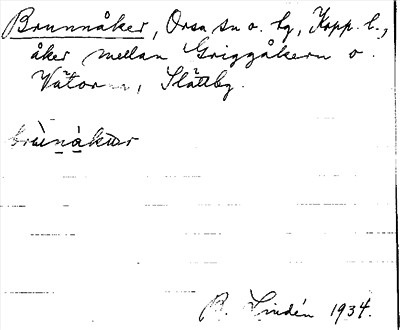 Brunnåker, Orsa sn o. tg, Kopp. l.,
åker mellan Griggåkern o.
Våtorna, Slättbg.
brùnàkur
B. Lindén 1934.